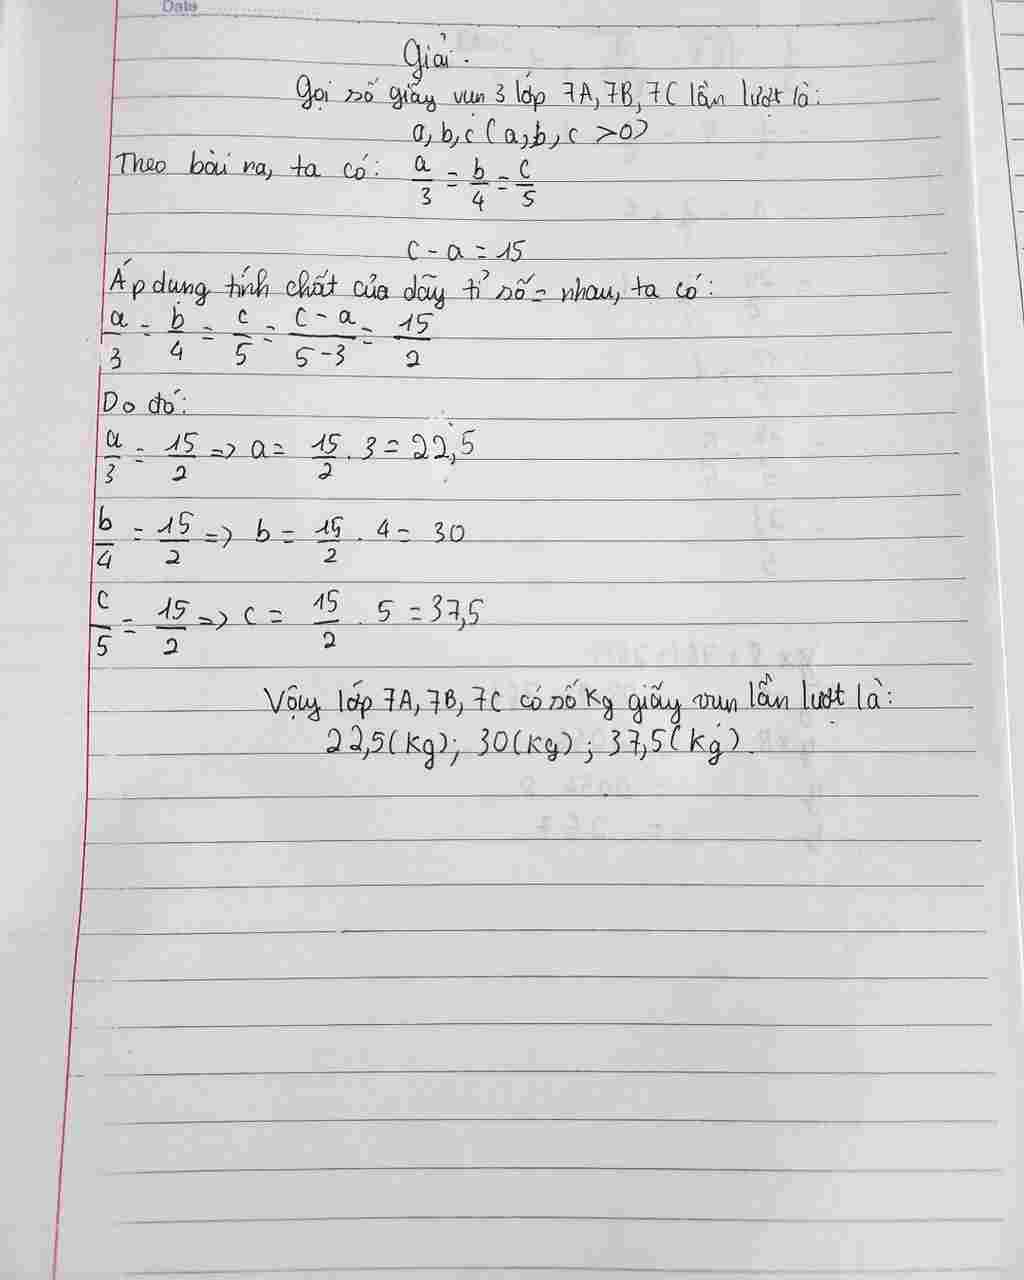 Date
Giải.
Gọi số giấy vụn 3 lớp 7A, 7B, 7C lần lượt là:
a, b, c (a, b, c >0)
Theo bài ra, ta có: a/3 = b/4 = c/5
c - a = 15
Áp dụng tính chất của dãy tỉ số = nhau, ta có:
a/3 = b/4 = c/5 = c - a/5 - 3 = 15/2
Do đó:
a/3 = 15/2 => a = 15/2 . 3 = 22,5
b/4 = 15/2 => b = 15/2 . 4 = 30
c/5 = 15/2 => c = 15/2 . 5 = 37,5
Vậy lớp 7A, 7B, 7C có số kg giấy vụn lần lượt là:
22,5(kg); 30(kg); 37,5(kg).